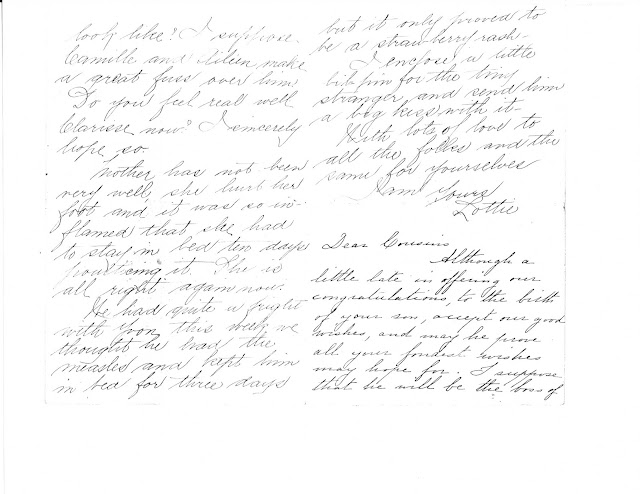 look like? I suppose
Camille and Aileen make
a great fuss over him
Do you feel real well
Clarisse now? I sincerely
hope so.
Mother has not been
very well, she hurt her
foot and it was so in-
flamed that she had
to stay in bed ten days
poulticing it. She is
all right again now.
We had quite a fright
with Yvon this week we
thought he had the
measles and kept him
in bed for three days
but it only proved to
be a strawberry rash-
I enclose a little
bib pin for the tiny
stranger, and send him
a big kiss with it-
With lots of love to
all the folks and the
same for yourselves
I am Yours
Lottie
Dear Cousins
Although a
little late in offering our
congratulations, to the birth
of your son, accept our good
wishes, and may he prove
all your fondest wishes
may hope for. I suppose
that he will be the boss of